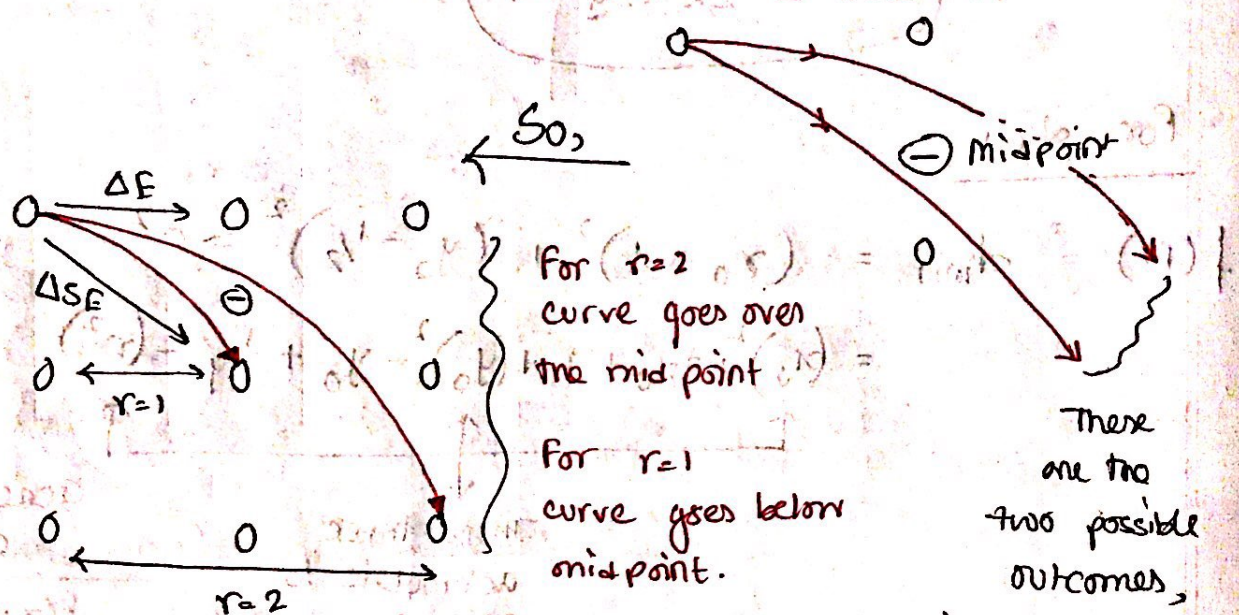 So,
⊖ midpoint
ΔE
ΔSE
⊖
r=1
r=2
For r=2
curve goes over
the mid point
For r=1
curve goes below
midpoint.
These
are the
two possible
outcomes,